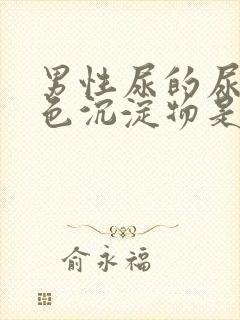 男性尿的尿
色沉淀物是
俞永福